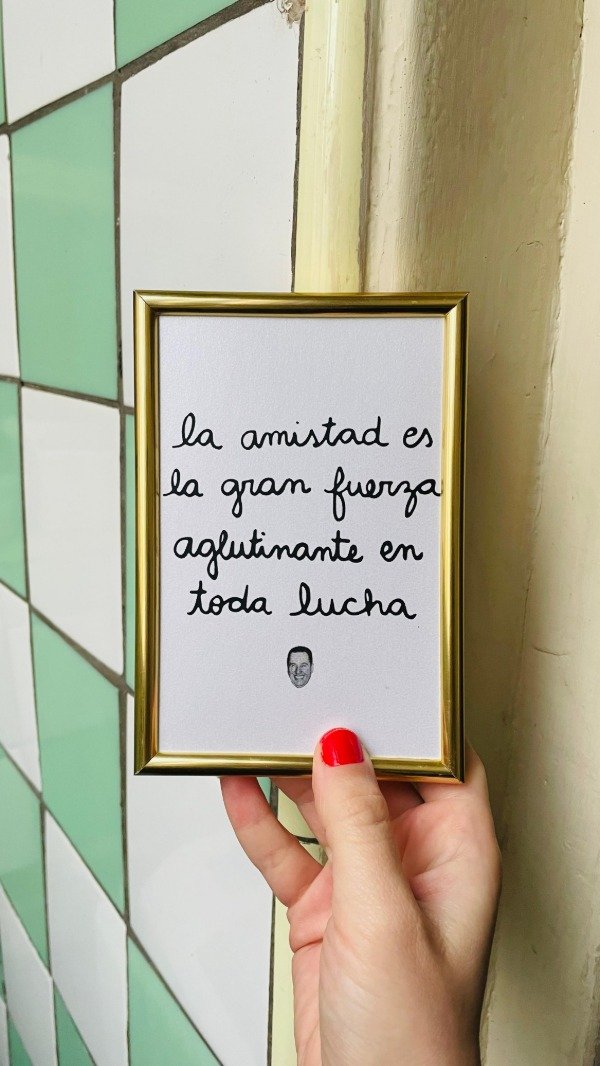 la amistad es
la gran fuerza
aglutinante en
toda lucha